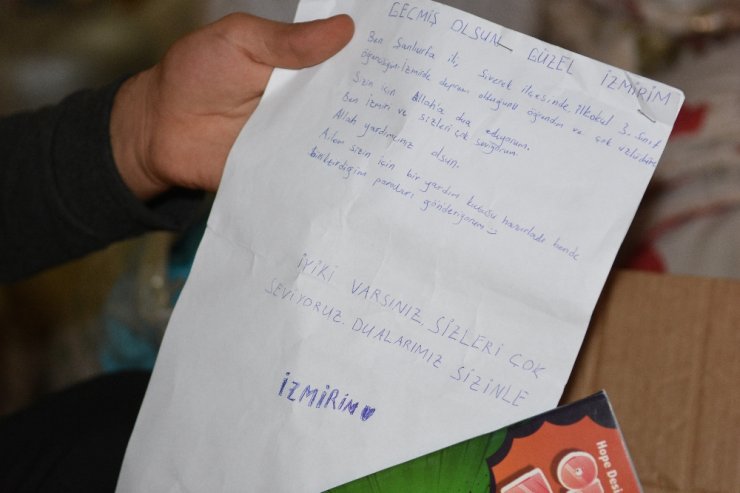 GEÇMİŞ OLSUN GÜZEL İZMİRİM
Ben Şanlıurfa ili, Siverek ilçesinde, ilkokul 3. sınıf
öğrencisiyim. İzmirde deprem olduğunu öğrendim ve çok üzüldüm.
Sizin için Allah'a dua ediyorum.
Ben İzmiri ve sizleri çok seviyorum.
Allah yardımcınız olsun.
Ailem sizin için bir yardım kutusu hazırladı bende
biriktirdiğim paraları gönderiyorum
İYİKİ VARSINIZ, SİZLERİ ÇOK
SEVİYORUZ. DUALARIMIZ SİZİNLE
İZMİRİM
Hope Desi